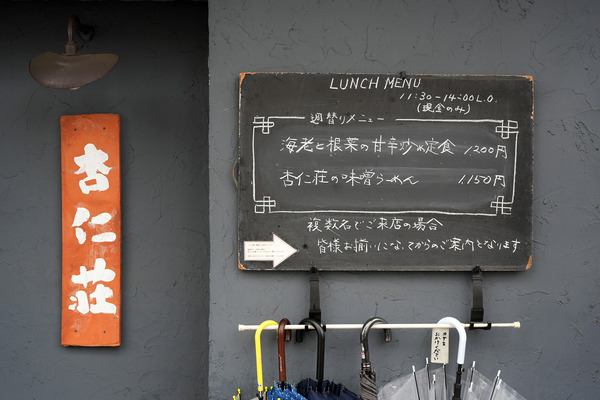 杏仁荘
LUNCH MENU
11:30-14:00 L.O.
(現金のみ)
週替りメニュー
海老と根菜の甘辛炒め定食 1,200円
杏仁荘の味噌らーめん 1,150円
複数名でご来店の場合
皆様お揃いになってからのご案内となります